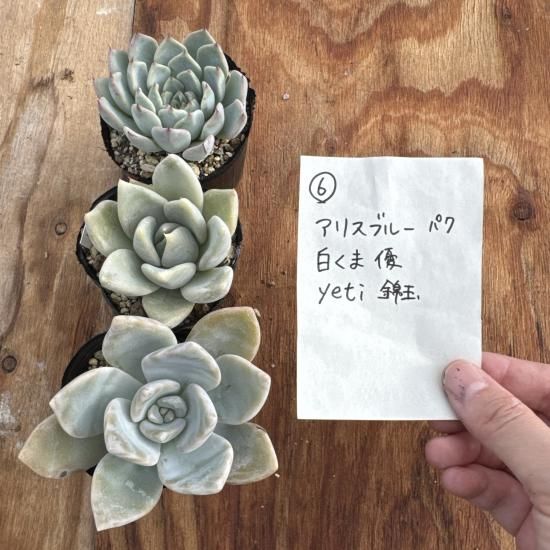 ⑥
アリスブルー パク
白くま 優
yeti 錦玉